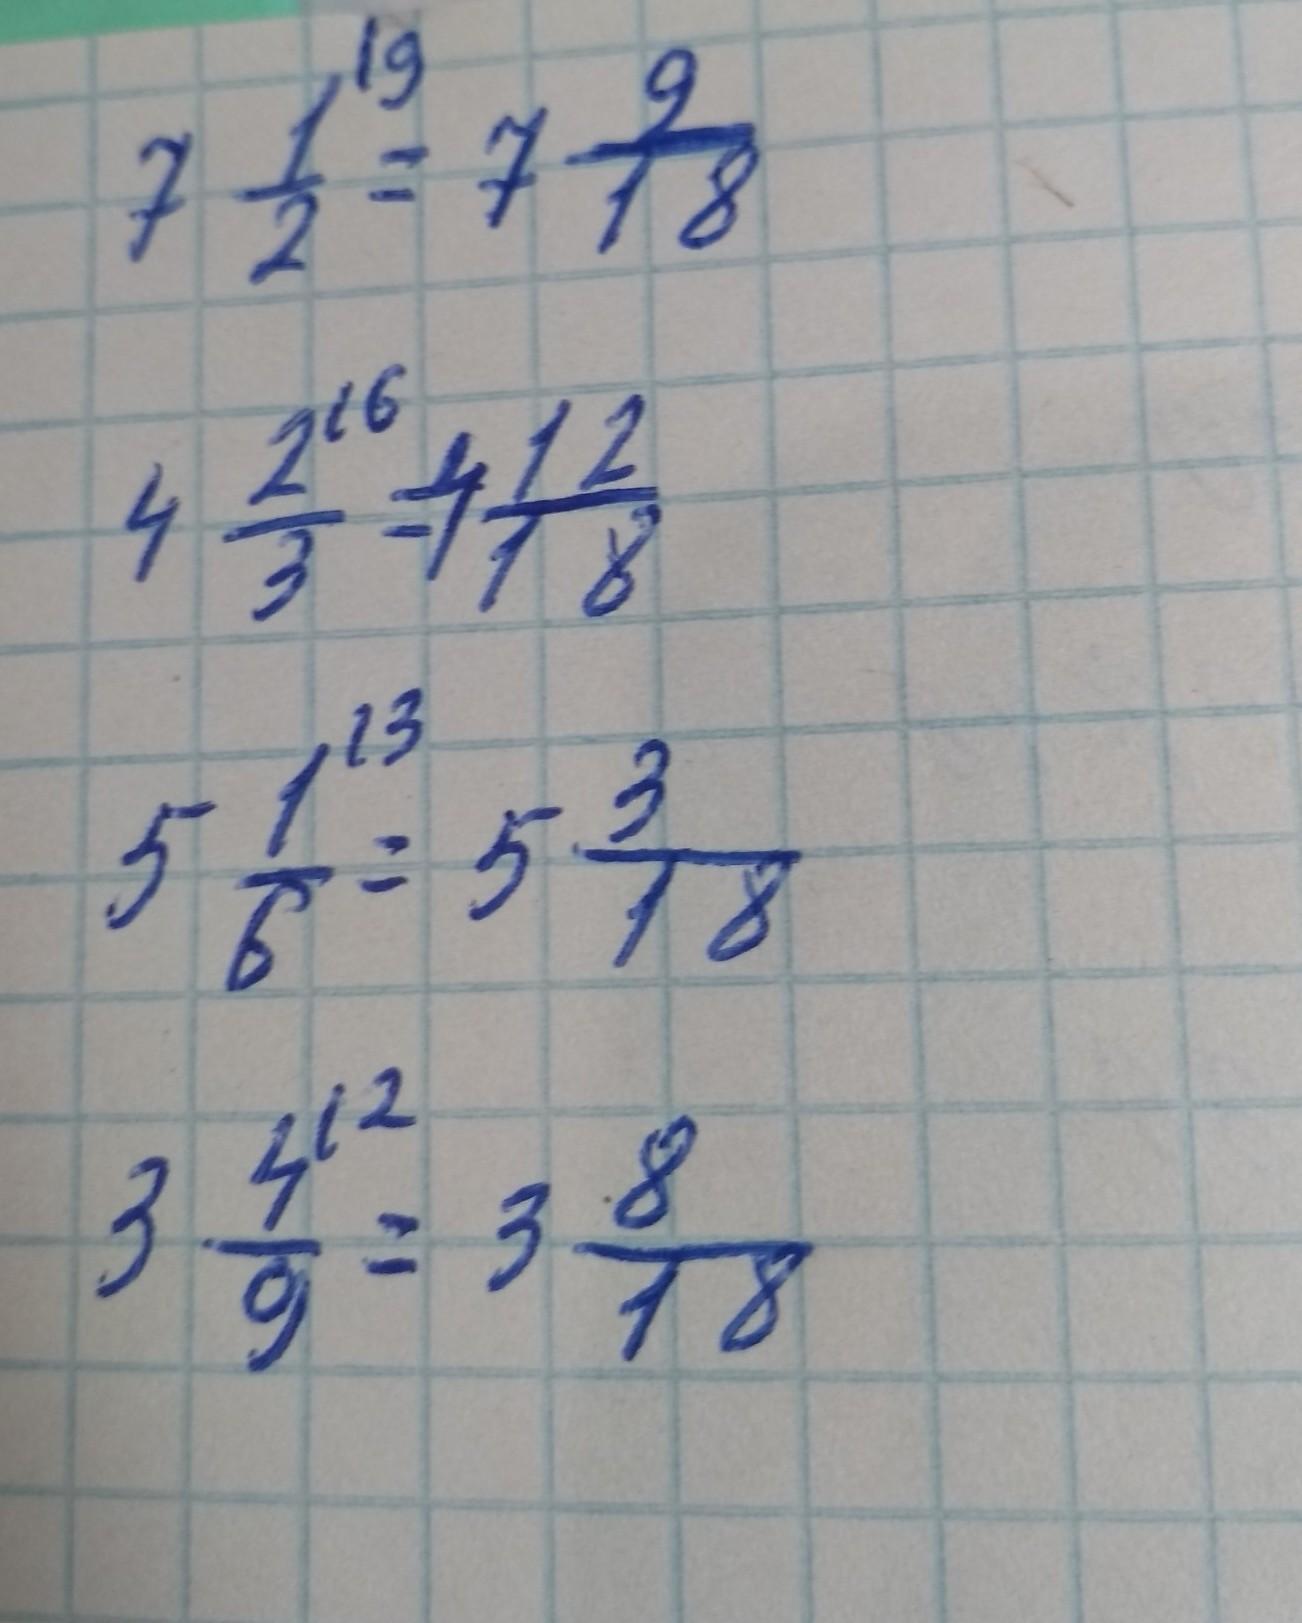 7 1/2 \9 = 7 9/18
4 2/3 \6 = 4 12/18
5 1/6 \3 = 5 3/18
3 4/9 \2 = 3 8/18